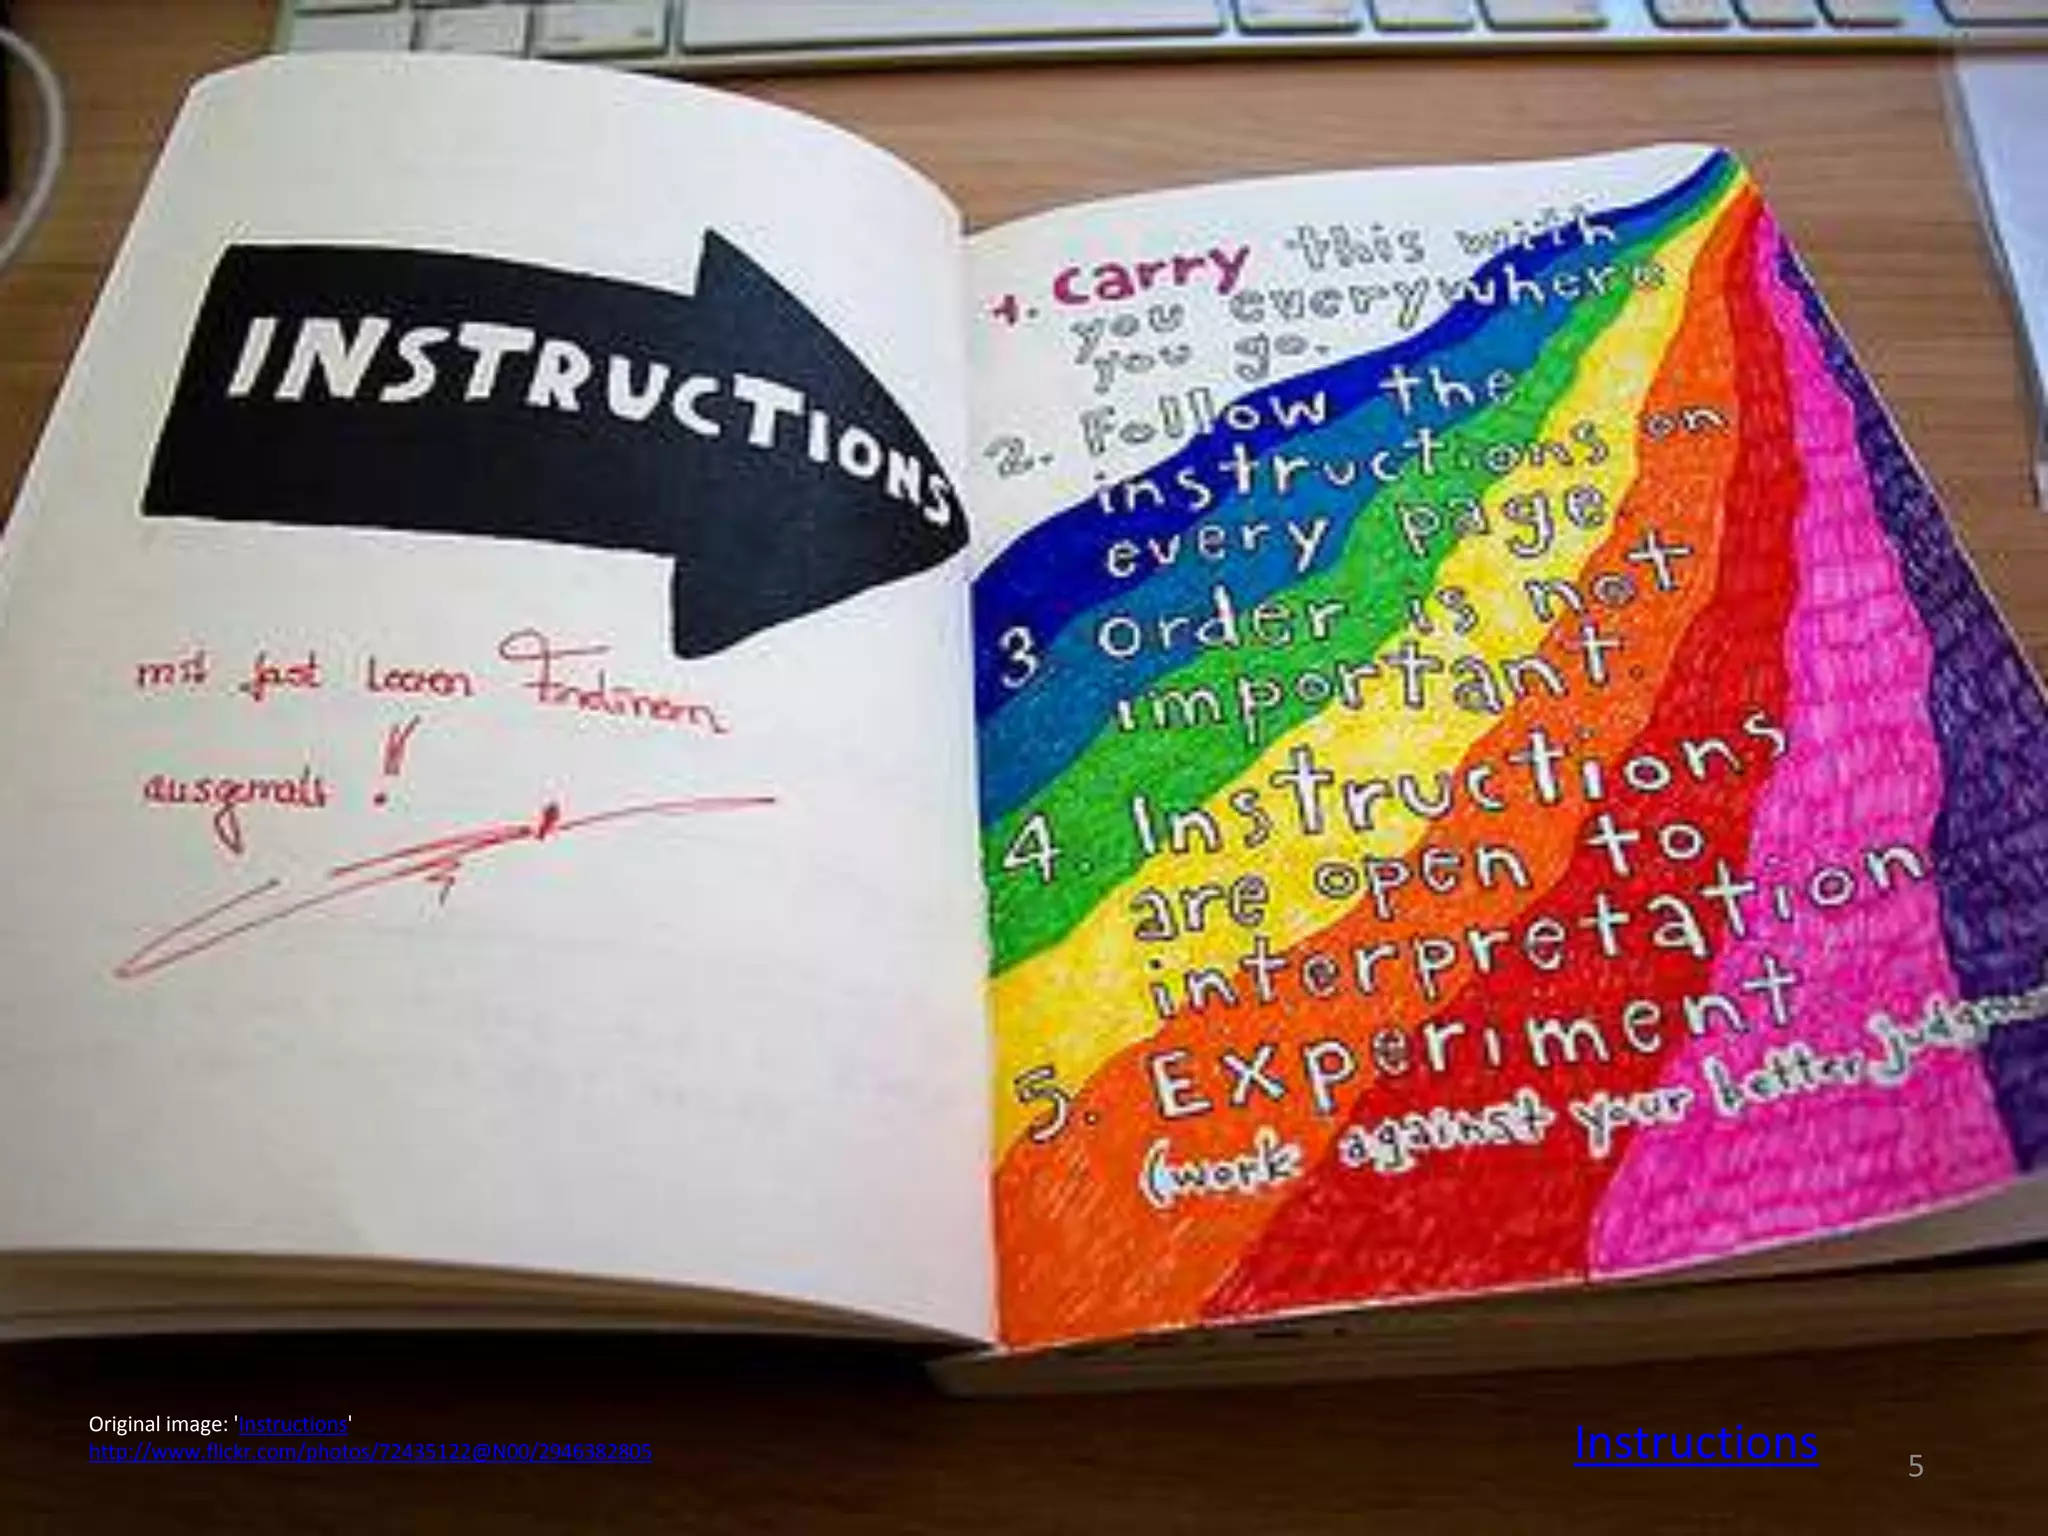 INSTRUCTIONS
mit fast leeren
ausgemalt !!
1. carry this with
you everywhere
you go.
2. Follow the
instructions on
every page.
3. Order is not
important.
4. Instructions
are open to
interpretation
5. Experiment
(work against your better judgment
Original image: 'Instructions'
http://www.flickr.com/photos/72435122@N00/2946382805
Instructions
5